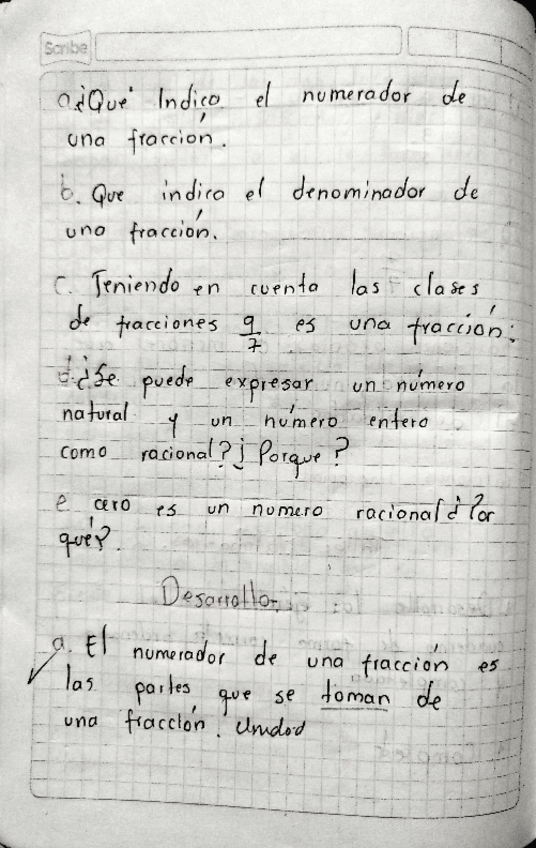 Scribe
a. ¿Qué Indica el numerador de
una fracción.
b. Que indica el denominador de
una fracción.
C. Teniendo en cuenta las clases
de fracciones 9/7 es una fracción:
d. ¿Se puede expresar un número
natural y un número entero
como racional? ¿Porque?
e cero es un numero racional ¿Por
qué?.
Desarrollo.
a. El numerador de una fracción es
las partes que se toman de
una fracción. Unidad